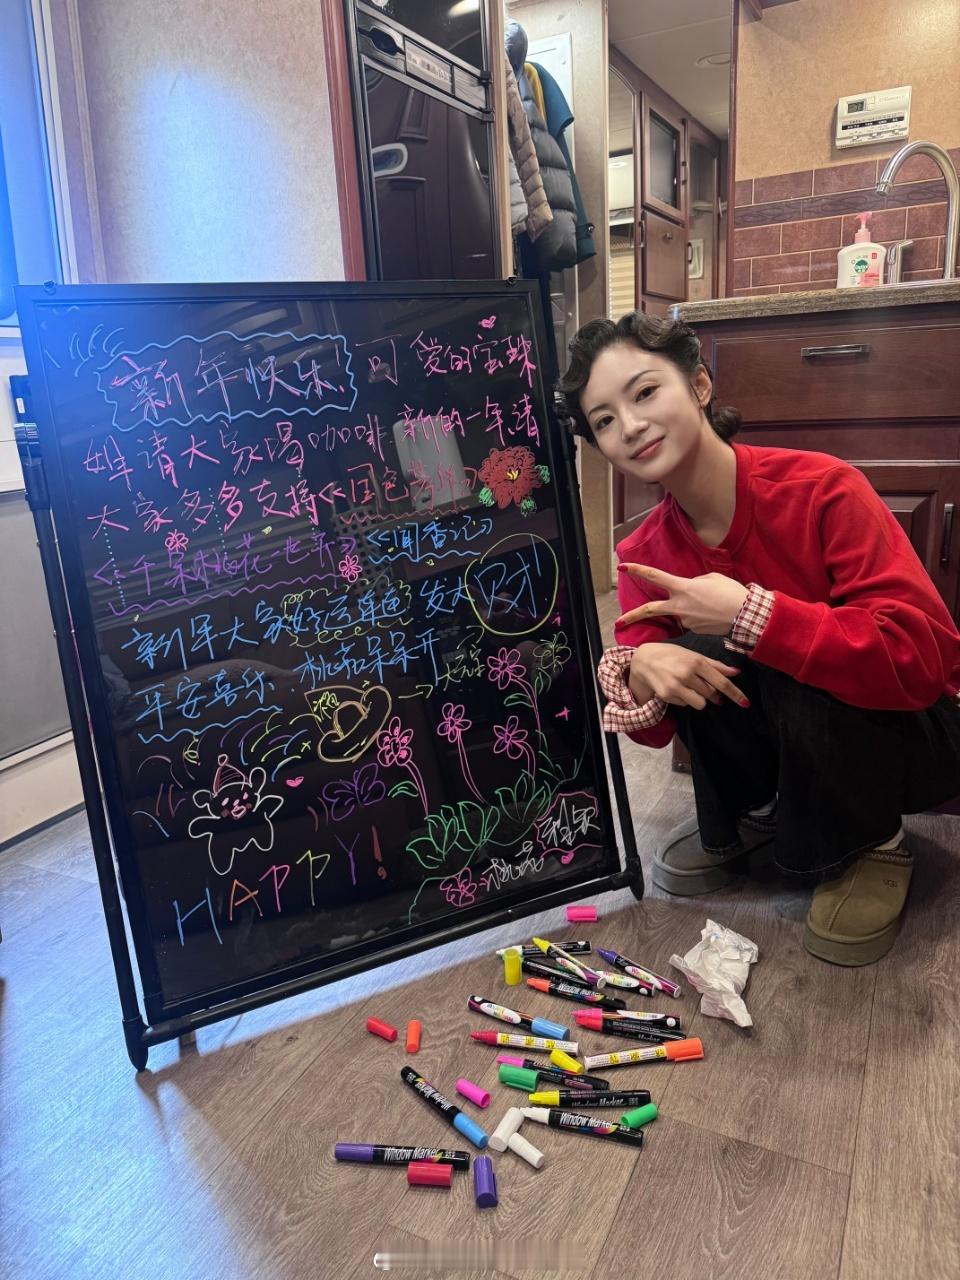 新年快乐!可爱的宝珠
姐请大家喝咖啡.新的一年请
大家多多支持《国色芳华》
《千朵桃花一世开》《闻香记》
新年大家好运连连 发大财!
平安喜乐.桃花朵朵开
HAPPY!
桃花
Window Marker
Window Marker
Window Marker
Window Marker